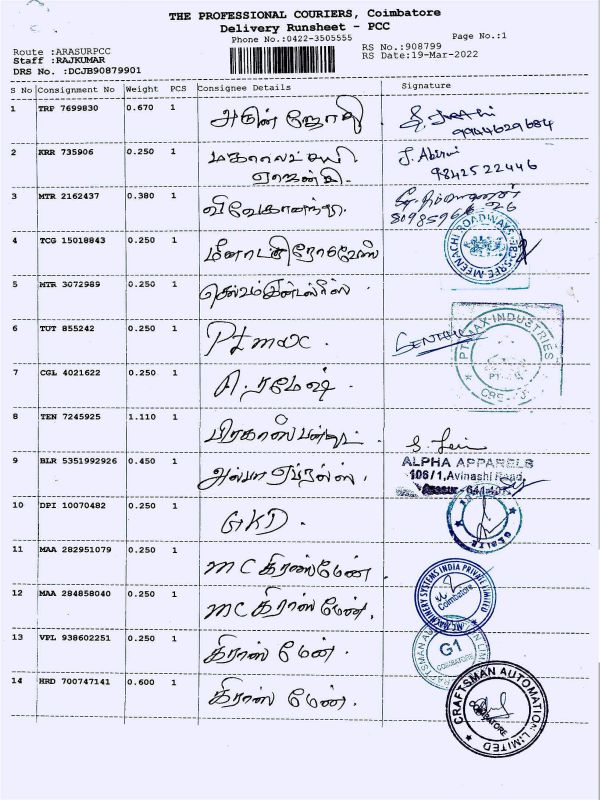 THE PROFESSIONAL COURIERS, Coimbatore
Delivery Runsheet - PCC
Phone No.:0422-3505555
Page No.:1
Route :ARASURPCC
Staff :RAJKUMAR
DRS No. :DCJB90879901
RS No.:908799
RS Date:19-Mar-2022
S No Consignment No Weight PCS Consignee Details Signature
1 TRP 7699830 0.670 1 அருன் ஜோதி
9944629684
2 KRR 735906 0.250 1 மகாலட்சுமி J. Abirami
ஏஜென்சி. 9842522446
3 MTR 2162437 0.380 1 விவேகானந்தா.
4 TCG 15018843 0.250 1 மீனாட்சி ரோடுவேஸ்
MEENACHI ROADWAYS
5 MTR 3072989 0.250 1
6 TUT 855242 0.250 1 Ptmax.
INDUSTRIES
7 CGL 4021622 0.250 1 A. ரமேஷ்.
8 TEN 7245925 1.110 1
9 BLR 5351992926 0.450 1 அல்பா
ALPHA APPARELS
106/1, Avinashi Road,
10 DPI 10070482 0.250 1 GKD.
11 MAA 282951079 0.250 1 MC கிராஸ்மேன்.
12 MAA 284858040 0.250 1 MC கிராஸ் மேன்.
MC MACHINERY SYSTEMS INDIA PRIVATE LIMITED
Coimbatore
13 VPL 938602251 0.250 1 கிராஸ் மேன்.
G1
COIMBATORE
14 HRD 700747141 0.600 1 கிராஸ் மேன்.
CRAFTSMAN AUTOMATION LIMITED
COIMBATORE